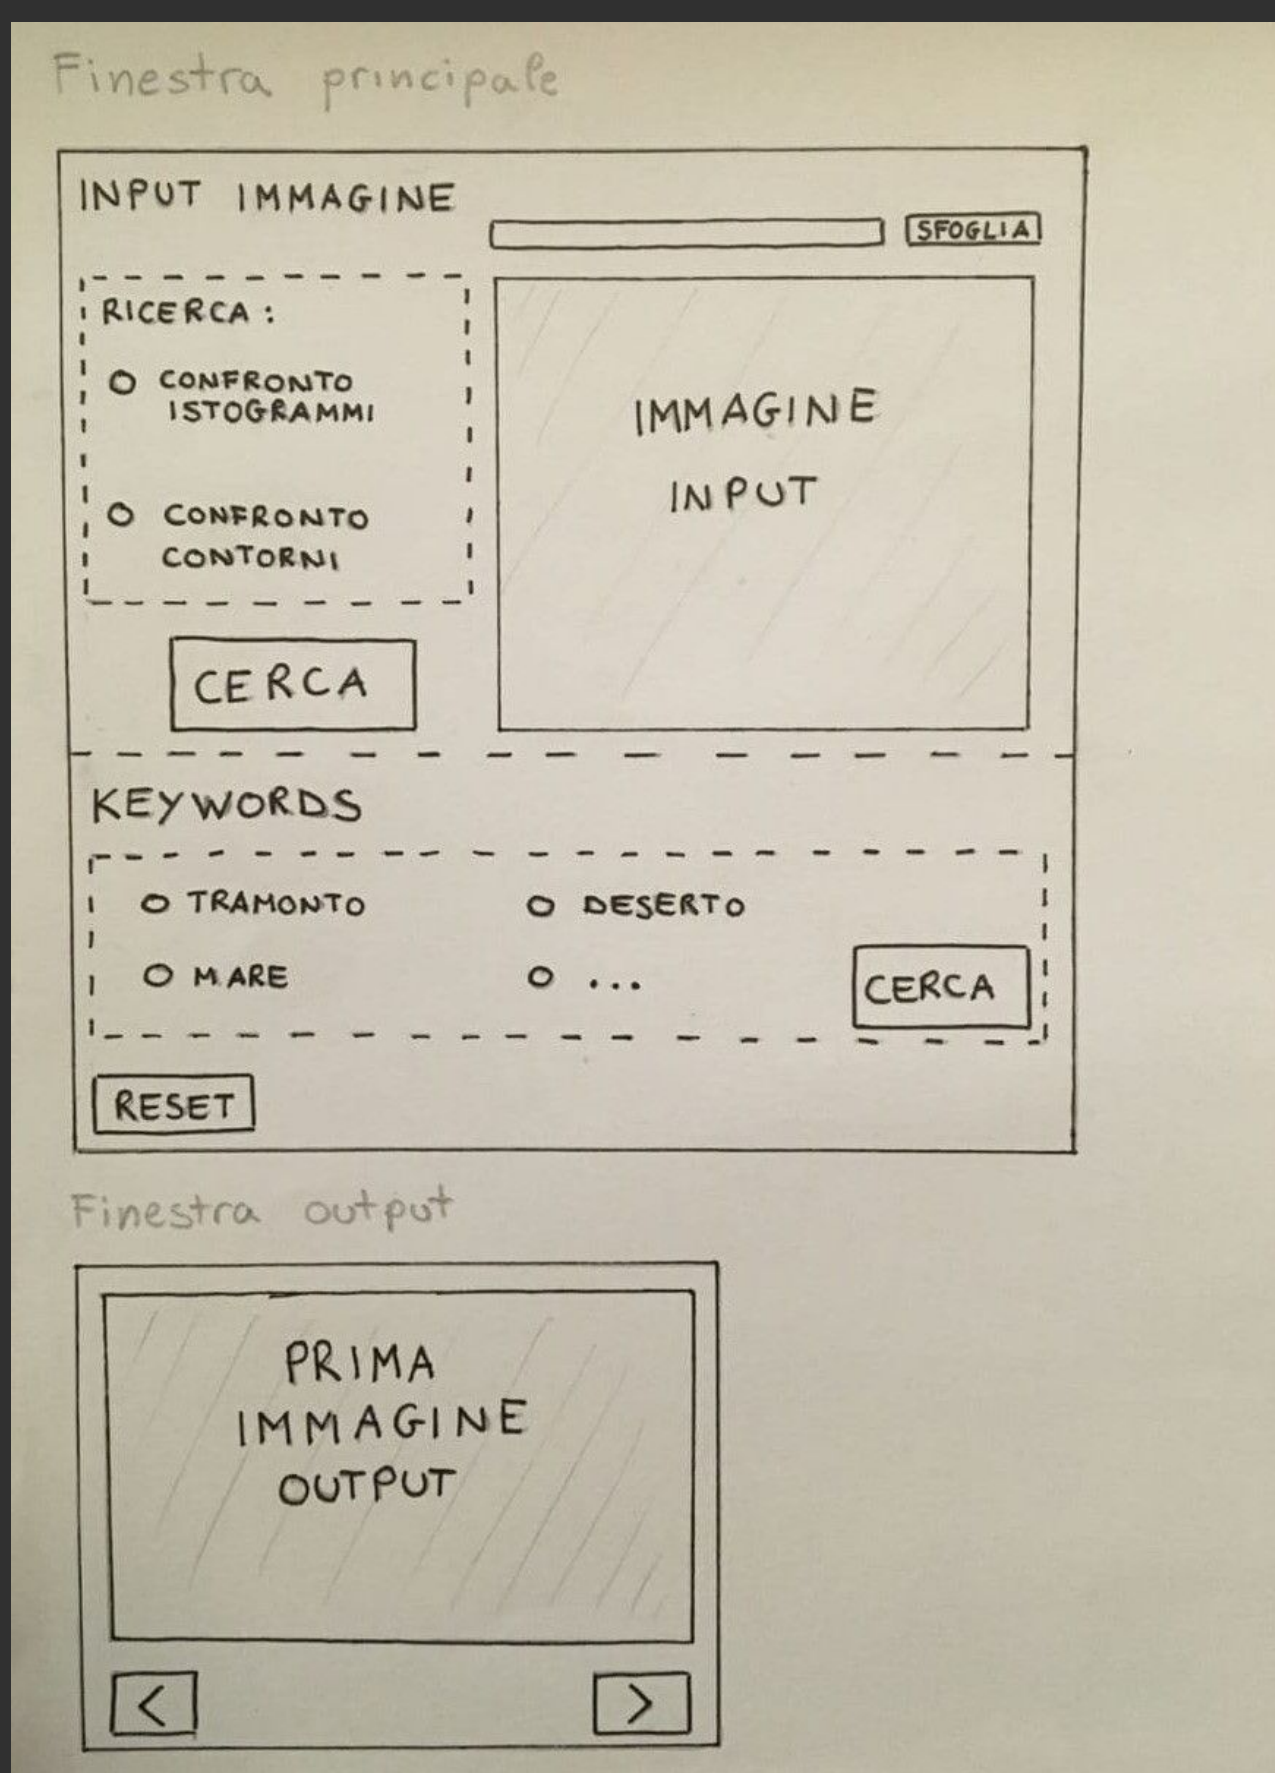 Finestra principale
INPUT IMMAGINE
SFOGLIA
RICERCA :
CONFRONTO
ISTOGRAMMI
CONFRONTO
CONTORNI
CERCA
IMMAGINE
INPUT
KEYWORDS
TRAMONTO
DESERTO
MARE
...
CERCA
RESET
Finestra output
PRIMA
IMMAGINE
OUTPUT
<
>